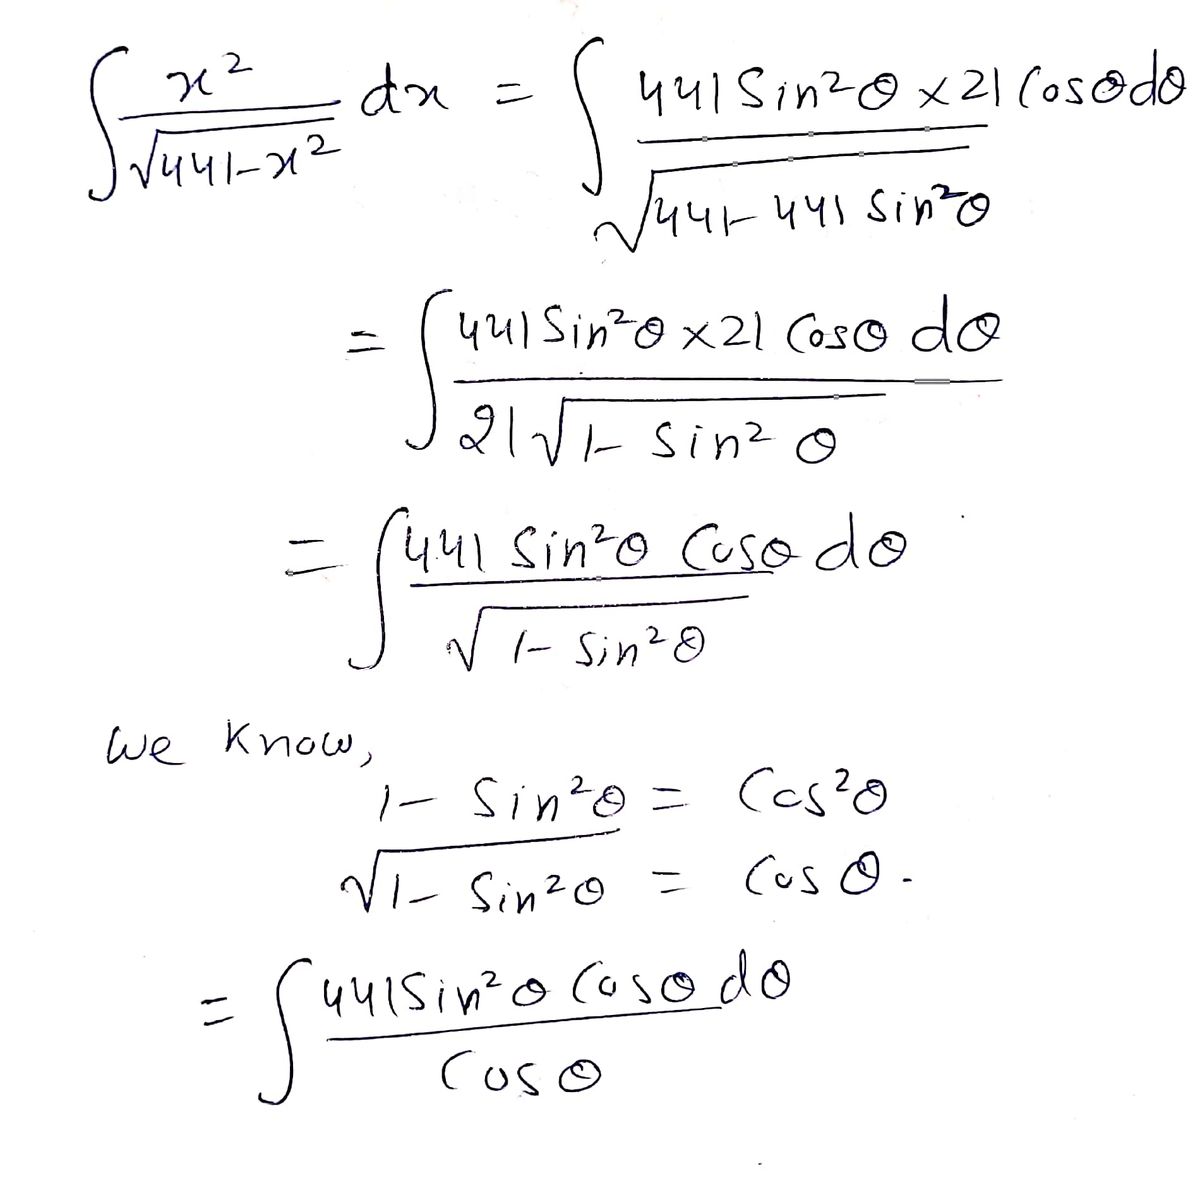 ∫ x²/√(441-x²) dx = ∫ 441 Sin²θ × 21 Cosθ dθ / √(441-441 Sin²θ)
= ∫ 441 Sin²θ × 21 Cosθ dθ / 21√(1-Sin²θ)
= ∫ 441 Sin²θ Cosθ dθ / √(1-Sin²θ)
We Know,
1- Sin²θ = Cos²θ
√(1- Sin²θ) = Cos θ.
= ∫ 441 Sin²θ Cosθ dθ / Cosθ